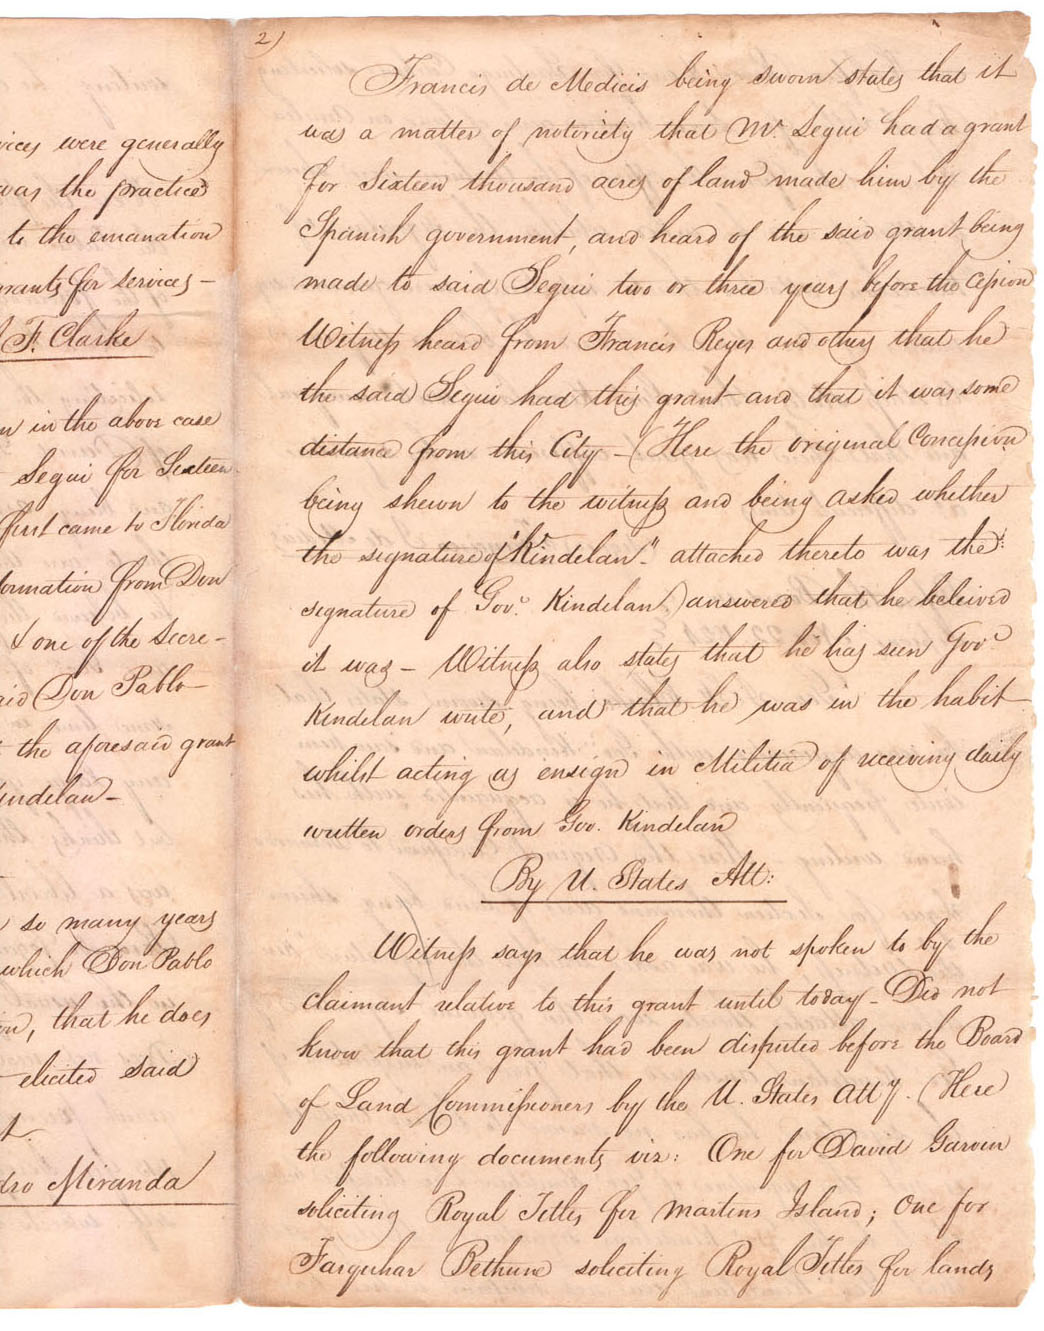 vices were generally
was the practice
to the emanation
grants for services –
F. Clarke
in the above case
Segui for Sixteen
first came to Florida
formation from Don
& one of the Secre-
said Don Pablo
the aforesaid grant
indelan –
so many years
which Don Pablo
that he does
elicited said
dro Miranda
2)
Francis de Medicis being sworn states that it
was a matter of notoriety that Mr. Segui had a grant
for Sixteen thousand acres of land made him by the
Spanish government, and heard of the said grant being
made to said Segui two or three years before the Cession
Witness heard from Francis Reyes and others that he
the said Segui had this grant and that it was some
distance from this City – (Here the original Concession
being shewn to the witness and being asked whether
the signature of "Kindelan" attached thereto was the
signature of Gov.r Kindelan) answered that he beleived
it was – Witness also states that he has seen Gov.r
Kindelan write, and that he was in the habit
whilst acting as ensign in Militia of receiving daily
written orders from Gov. Kindelan
By U. States Att:
Witness says that he was not spoken to by the
claimant relative to this grant until today – Did not
know that this grant had been disputed before the Board
of Land Commissioners by the U. States Atty. (Here
the following documents viz: One for David Garvin
soliciting Royal Titles for Martins Island; One for
Farquhar Bethune soliciting Royal Titles for lands